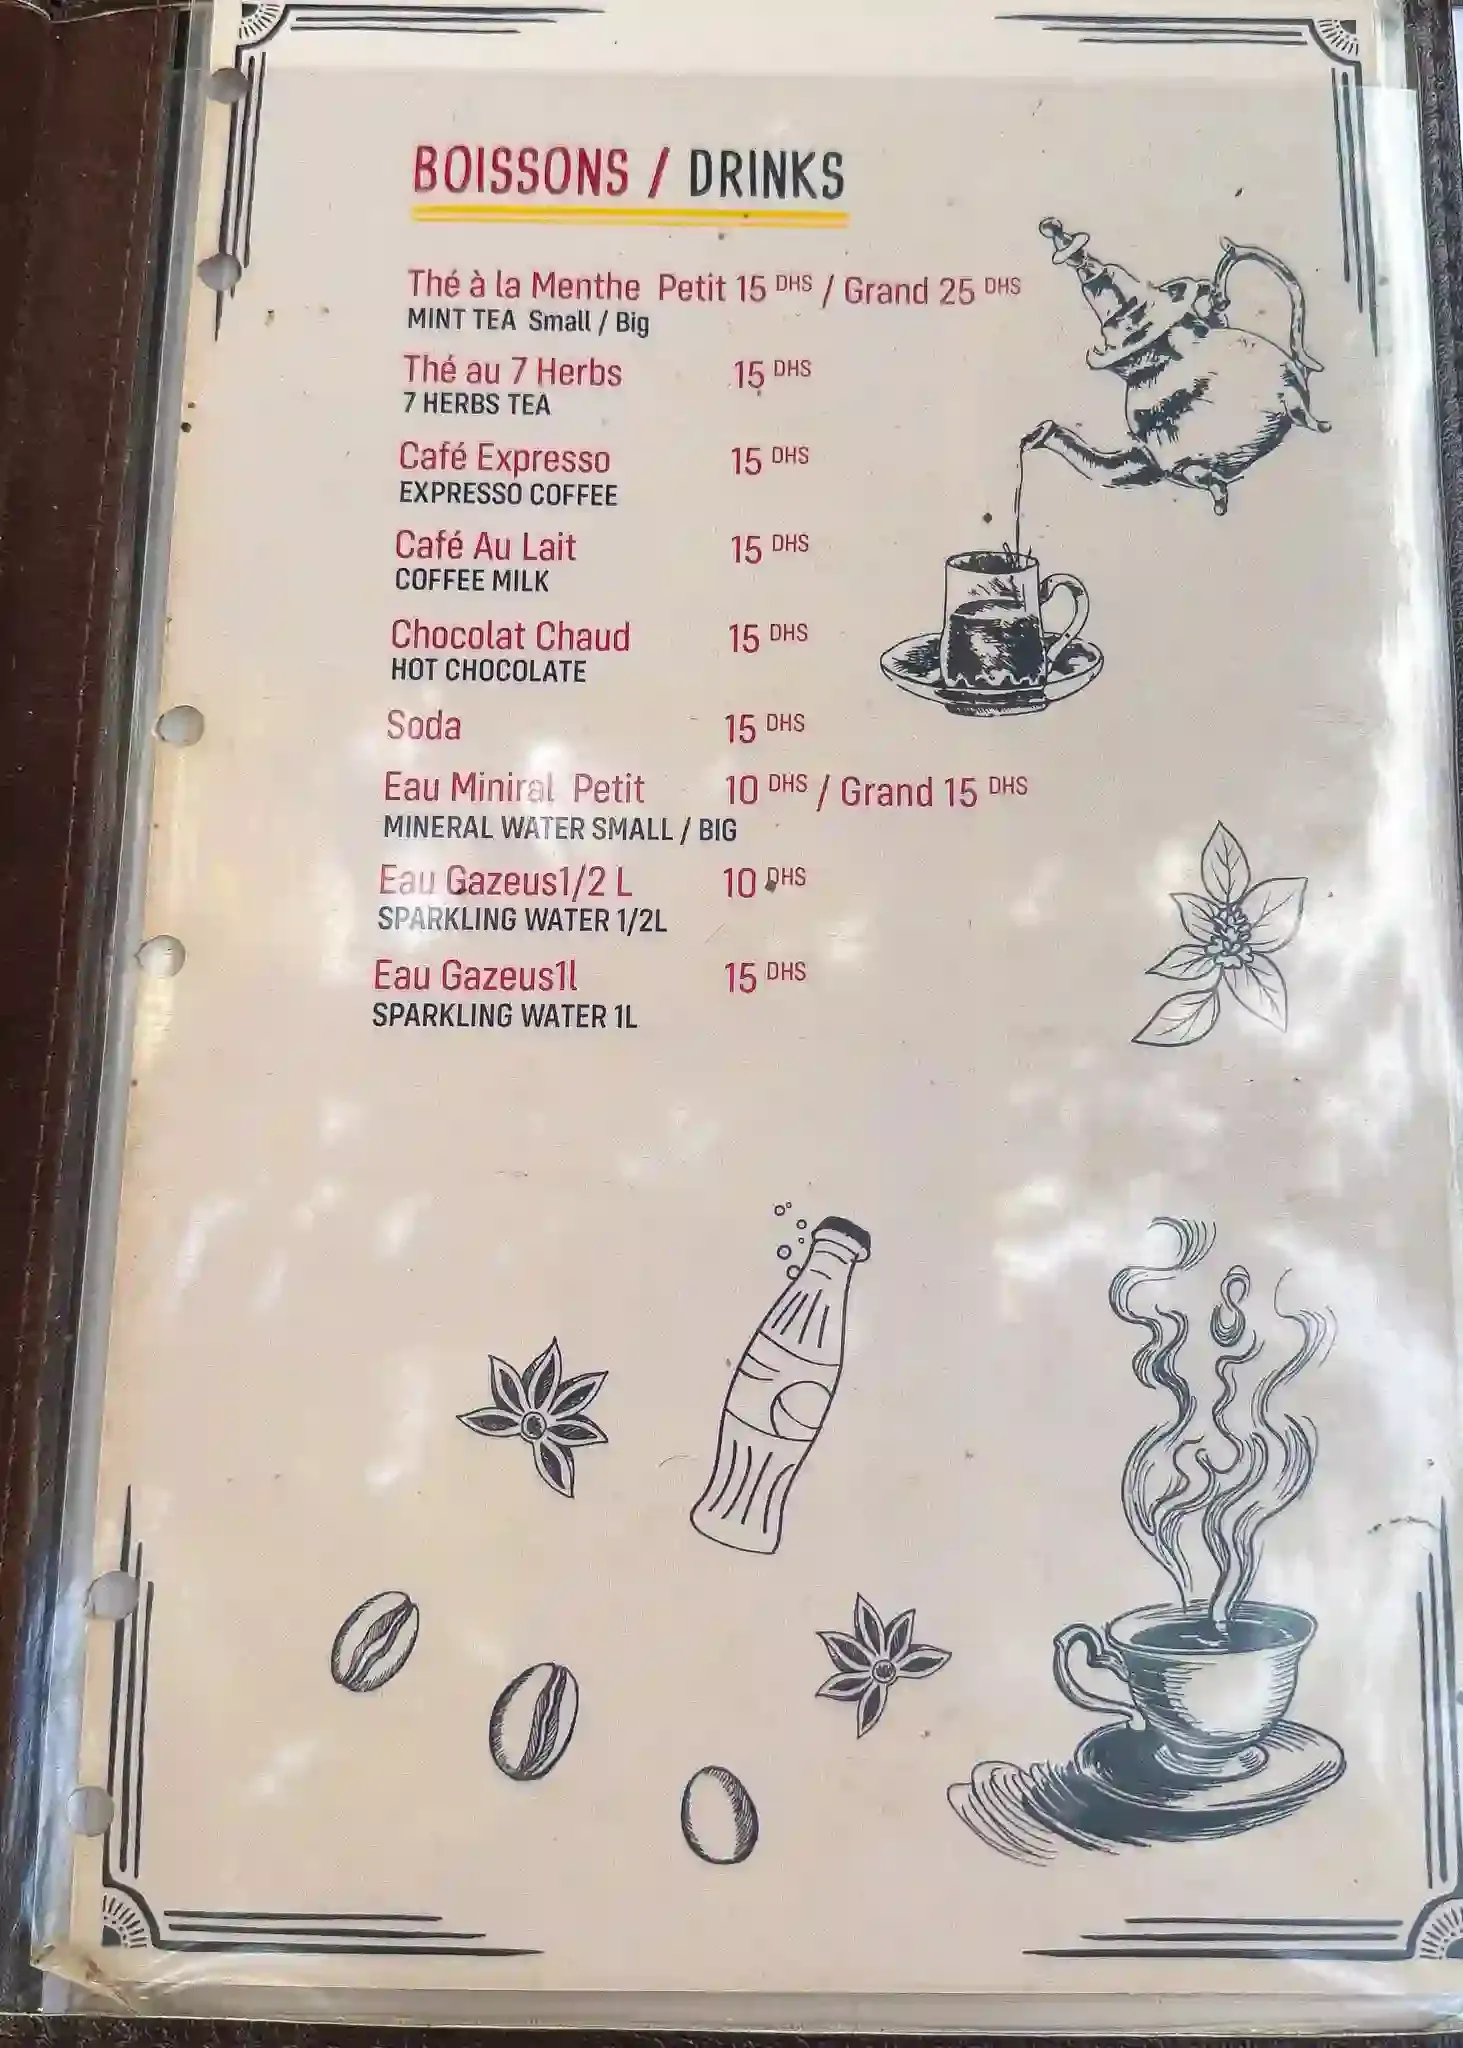 BOISSONS / DRINKS
Thé à la Menthe Petit 15 DHS / Grand 25 DHS
MINT TEA Small / Big
Thé au 7 Herbs 15 DHS
7 HERBS TEA
Café Expresso 15 DHS
EXPRESSO COFFEE
Café Au Lait 15 DHS
COFFEE MILK
Chocolat Chaud 15 DHS
HOT CHOCOLATE
Soda 15 DHS
Eau Miniral Petit 10 DHS / Grand 15 DHS
MINERAL WATER SMALL / BIG
Eau Gazeus1/2 L 10 DHS
SPARKLING WATER 1/2L
Eau Gazeus1l 15 DHS
SPARKLING WATER 1L